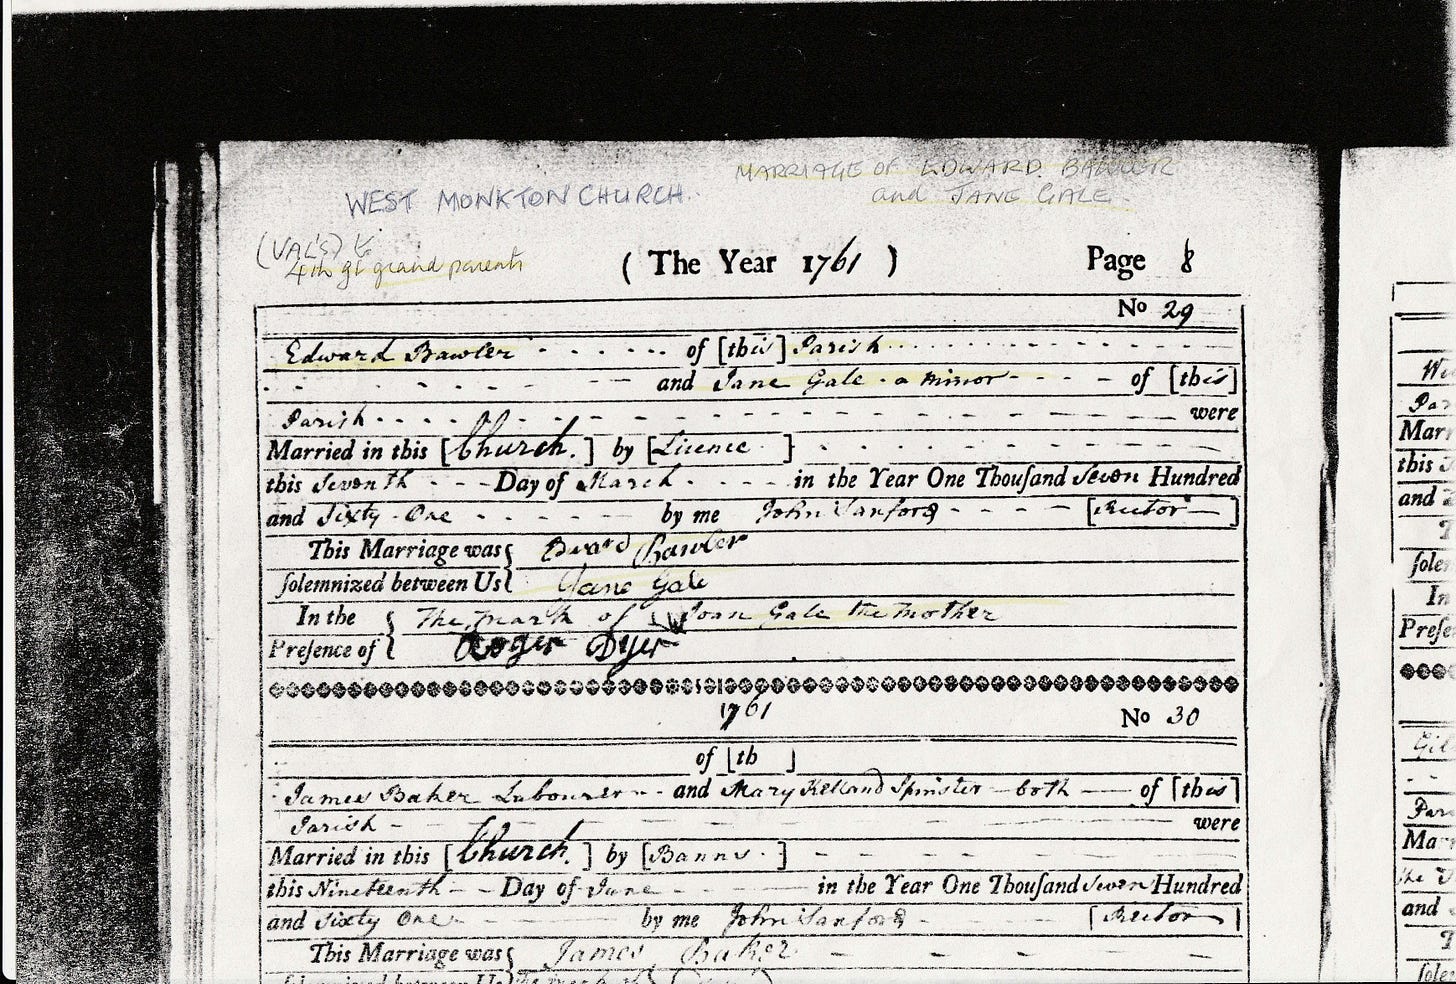 MARRIAGE OF EDWARD BAWLER
and JANE GALE.
WEST MONKTON CHURCH.
(VAL'S)
4th gt grand parents
( The Year 1761 ) Page 8
No 29
Edward Bawler of [this] Parish
and Jane Gale a minor of [this]
Parish were
Married in this [Church.] by [Licence]
this Seventh Day of March in the Year One Thouſand Seven Hundred
and Sixty One by me John Sanford [Rector]
This Marriage was { Edward Bawler
ſolemnized between Us { Jane Gale
In the { The mark of Joan Gale the mother
Preſence of { Roger Dyer
1761 No 30
of [th ]
James Baker Labourer and Mary Kelland Spinster both of [this]
Parish were
Married in this [Church.] by [Banns]
this Nineteenth Day of June in the Year One Thouſand Seven Hundred
and Sixty One by me John Sanford [Rector]
This Marriage was { James Baker
ſolemnized between Us {
Par
Marr
this
and
ſole
In
Preſe
Par
Ma
and
ſole